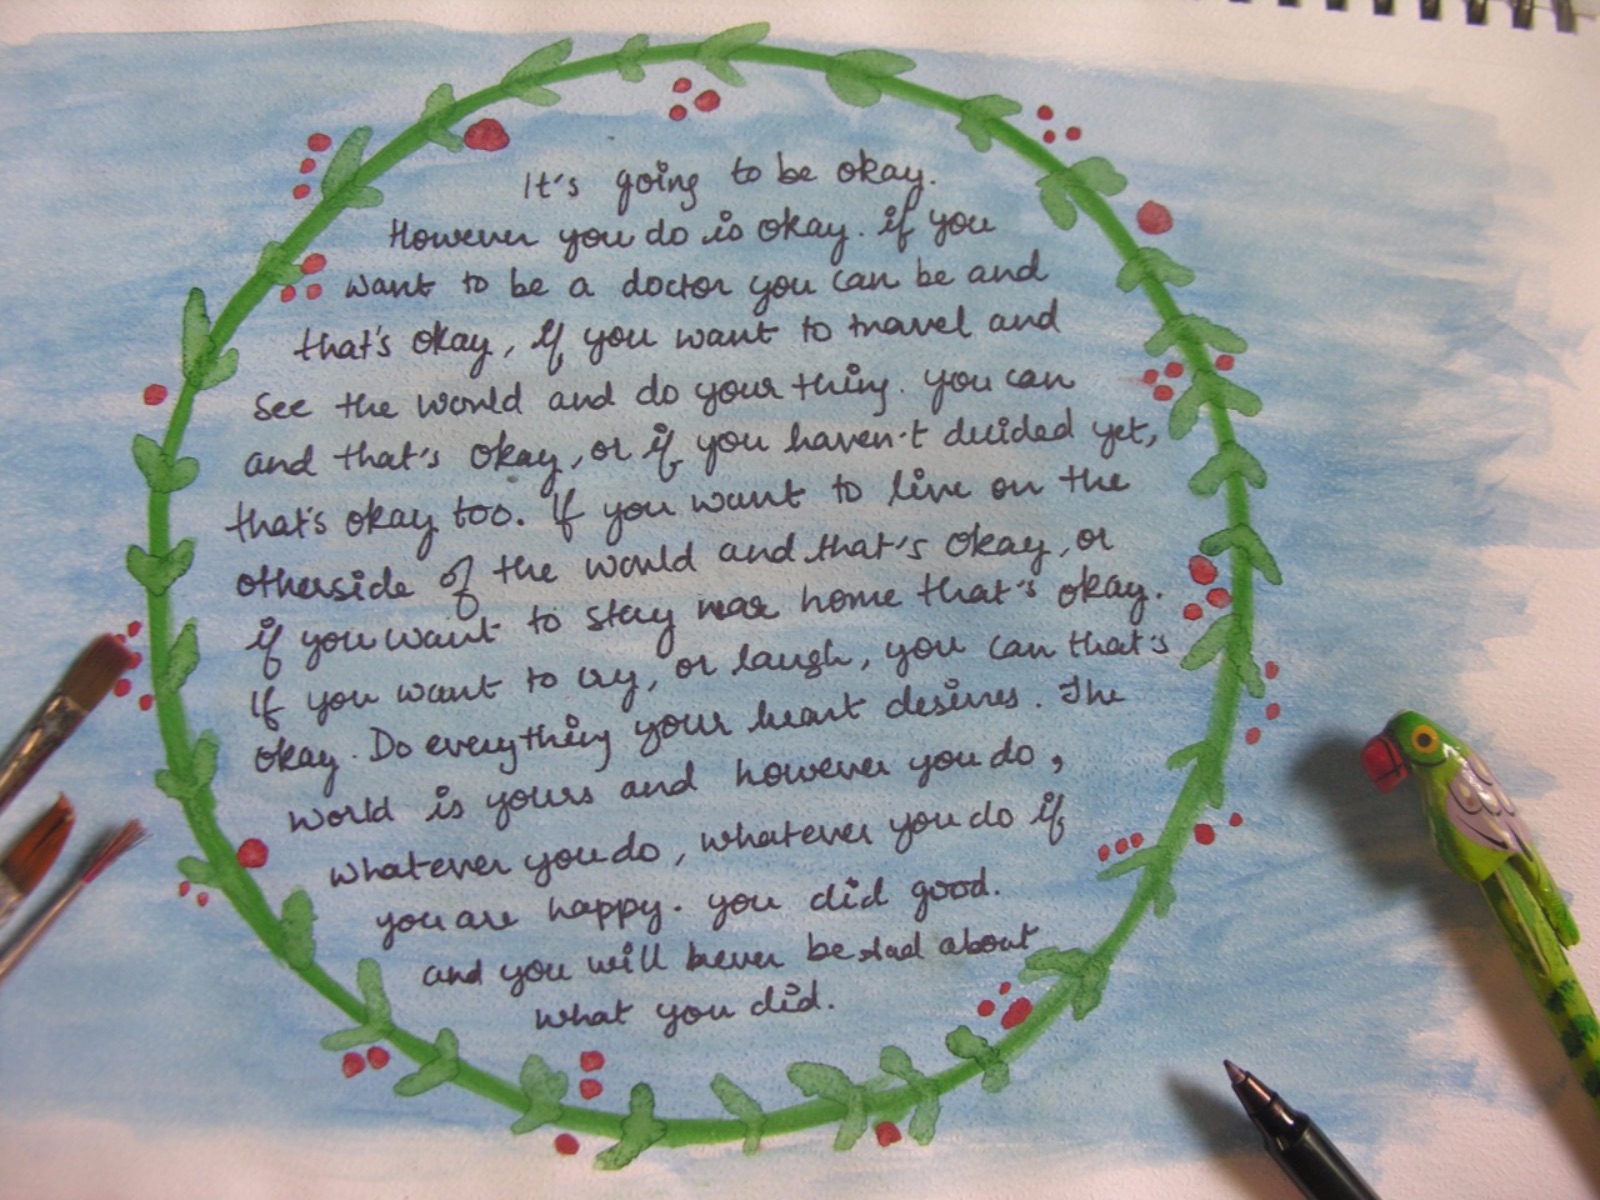 It's going to be okay.
However you do is okay. if you
want to be a doctor you can be and
that's okay, if you want to travel and
see the world and do your thing. you can
and that's okay, or if you haven't decided yet,
that's okay too. If you want to live on the
otherside of the world and that's okay, or
if you want to stay near home that's okay.
If you want to cry, or laugh, you can that's
okay. Do everything your heart desires. The
world is yours and however you do,
whatever you do, whatever you do if
you are happy. you did good.
and you will never be sad about
what you did.